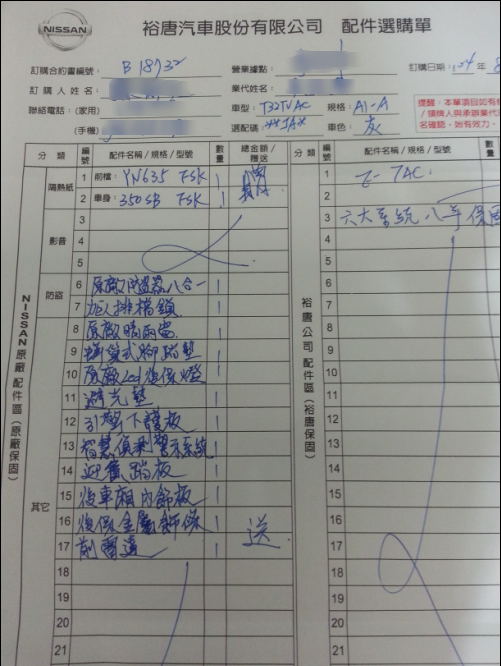 NISSAN
裕唐汽車股份有限公司 配件選購單
訂購合約書編號： B18732
營業據點：
訂購日期：104年8
訂購人姓名：
業代姓名：
聯絡電話：(家用)
車型： T32TVAC 規格： A1-A
(手機)
選配碼： **JAX 車色： 灰
提醒：本單項目如有
領牌人與承辦業代
名確認，始有效力。
分類 編號 配件名稱/規格/型號 數量 總金額/贈送
編號 配件名稱/規格/型號 數量
NISSAN原廠配件區(原廠保固)
隔熱紙
1 前檔： YN635 FSK 1
2 車身： 350SB FSK 1
影音
3
4
5
防盜
6 原廠防盜器八合一 1
7 力巨人排檔鎖 1
8 原廠晴雨窗 1
9 1
10 原廠Led後保燈 1
11 避光墊 1
12 引擎下護板 1
13 智慧偵測警示系統 1
14 迎賓踏板 1
15 後車廂內飾板 1
其它
16 後保金屬飾條 1
17 前雷達 1 送
18
19
20
21
裕唐公司配件區(裕唐保固)
1 E-TAG
2
3 六大系統八年保固
4
5
6
7
8
9
10
11
12
13
14
15
16
17
18
19
20
21